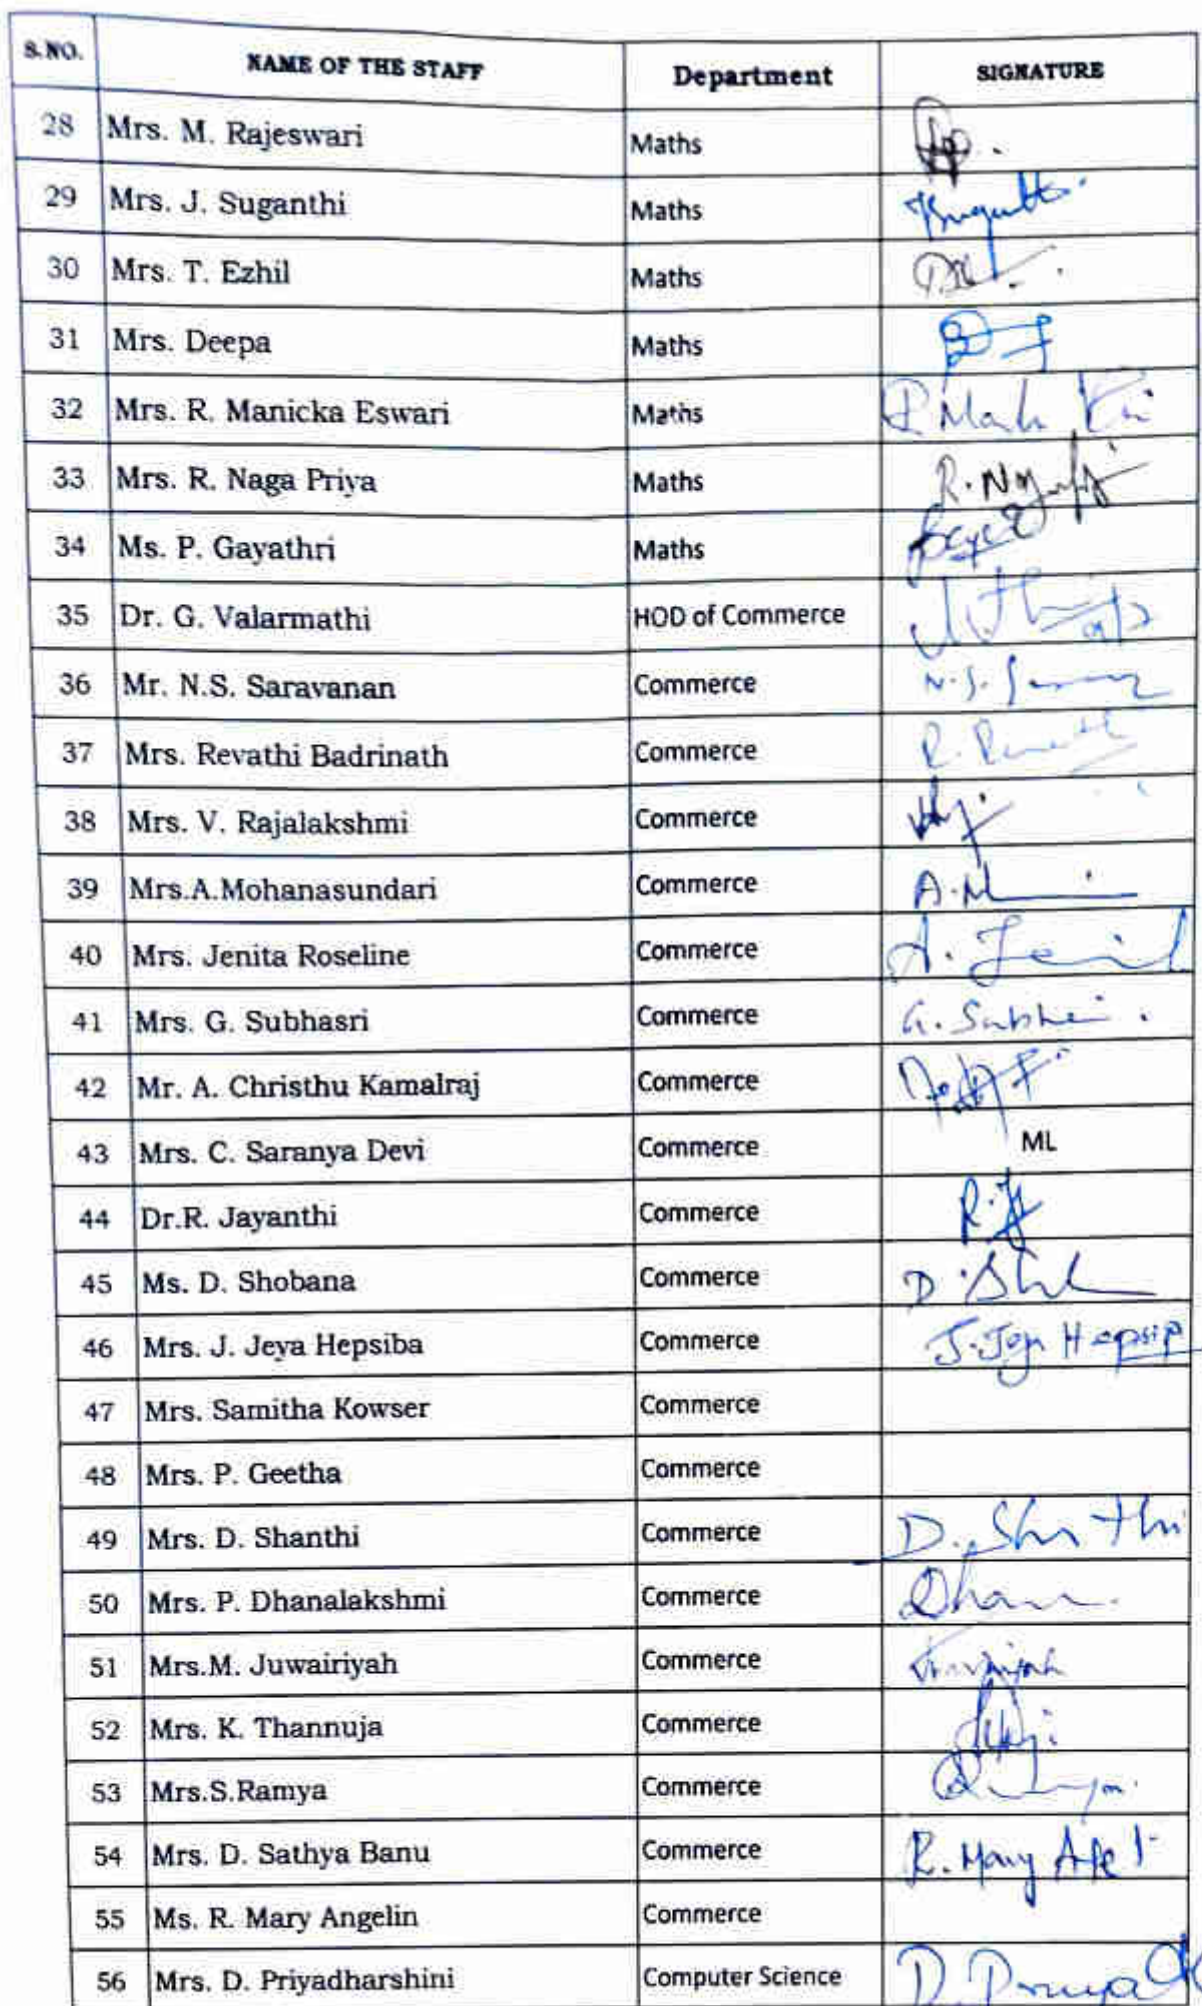 S.NO. NAME OF THE STAFF Department SIGNATURE
28 Mrs. M. Rajeswari Maths
29 Mrs. J. Suganthi Maths
30 Mrs. T. Ezhil Maths
31 Mrs. Deepa Maths
32 Mrs. R. Manicka Eswari Maths
33 Mrs. R. Naga Priya Maths
34 Ms. P. Gayathri Maths
35 Dr. G. Valarmathi HOD of Commerce
36 Mr. N.S. Saravanan Commerce N.S.
37 Mrs. Revathi Badrinath Commerce
38 Mrs. V. Rajalakshmi Commerce
39 Mrs.A.Mohanasundari Commerce
40 Mrs. Jenita Roseline Commerce
41 Mrs. G. Subhasri Commerce
42 Mr. A. Christhu Kamalraj Commerce
43 Mrs. C. Saranya Devi Commerce ML
44 Dr.R. Jayanthi Commerce
45 Ms. D. Shobana Commerce
46 Mrs. J. Jeya Hepsiba Commerce
47 Mrs. Samitha Kowser Commerce
48 Mrs. P. Geetha Commerce
49 Mrs. D. Shanthi Commerce
50 Mrs. P. Dhanalakshmi Commerce
51 Mrs.M. Juwairiyah Commerce
52 Mrs. K. Thannuja Commerce
53 Mrs.S.Ramya Commerce
54 Mrs. D. Sathya Banu Commerce R. Mary
55 Ms. R. Mary Angelin Commerce
56 Mrs. D. Priyadharshini Computer Science D. Priya